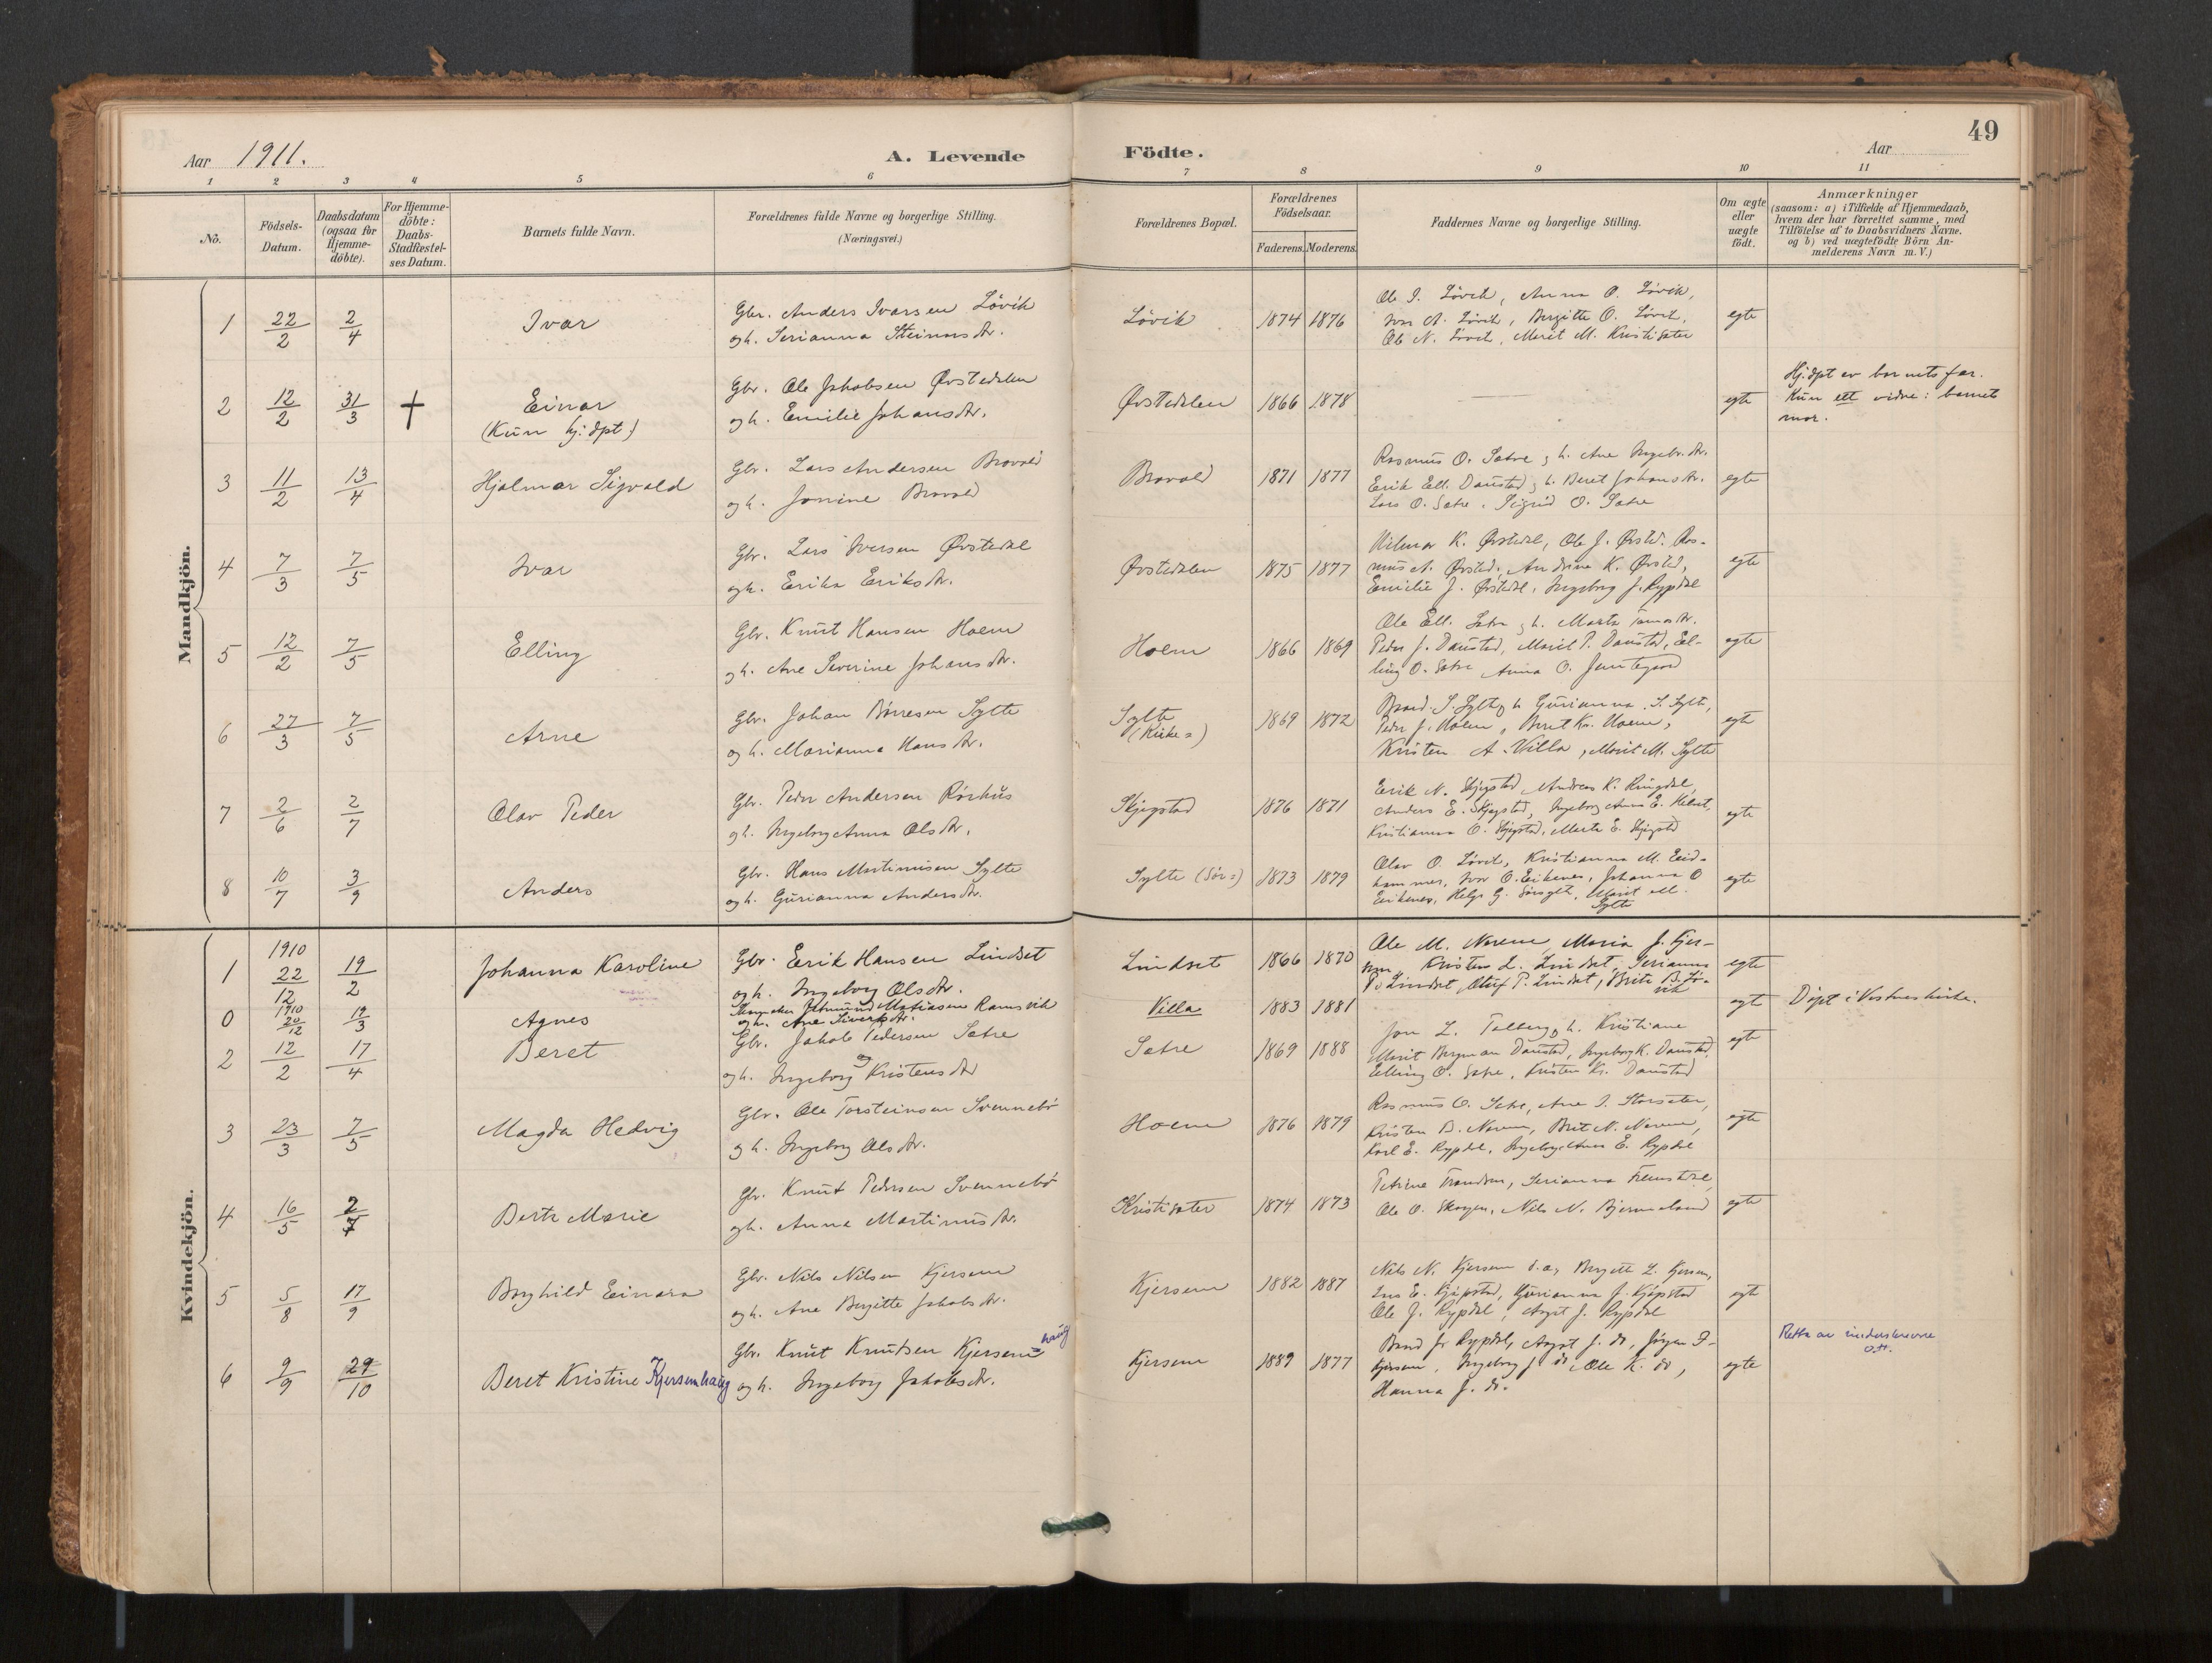 49
Aar 1911.
A. Levende
Födte.
Aar
1 2 3 4 5 6 7 8 9 10 11
No.
Födsels-
Datum.
Daabsdatum
(ogsaa for
Hjemme-
döbte).
For Hjemme-
döbte:
Daabs-
Stadfæstel-
ses Datum.
Barnets fulde Navn.
Forældrenes fulde Navne og borgerlige Stilling.
(Næringsvei.)
Forældrenes Bopæl.
Forældrenes
Födselsaar.
Faderens. Moderens.
Faddernes Navne og borgerlige Stilling.
Om ægte
eller
uægte
födt.
Anmærkninger
(saasom: a) i Tilfælde af Hjemmedaab,
hvem der har forrettet samme, med
Tilföielse af to Daabsvidners Navne.
og b) ved uægtefödte Börn An-
melderens Navn m.V.)
Mandkjön.
1 22/2 2/4 Ivar
Gbr. Anders Ivarsen Lövik
og h. Serianna Steinarsdr.
Lövik 1874 1876
Ole I. Lövik, Anna O. Lövik,
Ivar A. Lövik, Bergitte O. Lövik,
Ole N. Lövik, Marit M. Kristisæter
egte
2 12/2 31/3 † Einar
(Kun hj.döpt)
Gbr. Ole Jakobsen Øvstedalen
og h. Emilie Johansdr.
Øvstedalen 1866 1878 —
egte
Hj.döpt av barnets far.
Kun ett vidne: barnets
mor.
3 11/2 13/4 Hjalmar Sigvald
Gbr. Lars Andersen Brovold
og h. Jonine Brovold
Brovold 1871 1877
Rasmus O. Sætre, h. Ane Ingebr.dr.
Erik Ell. Daustad, h. Beret Johansdr.
Lars O. Sætre, Sigrid O. Sætre
egte
4 7/3 7/5 Ivar
Gbr. Lars Iversen Øvstedal
og h. Erika Eriksdr.
Øvstedalen 1875 1877
Hilmar K. Øvstedal, Ole J. Øvsted. Ras-
mus A. Øvsted. Andrine K. Øvsted,
Emilie J. Øvstedal, Ingeborg J. Rypdal
egte
5 12/2 7/5 Elling
Gbr. Knut Hansen Hoem
og h. Ane Severine Johansdr.
Hoem 1866 1869
Ole Ell. Sætre, h. Marta
Peder J. Daustad, Marit P. Daustad, El-
ling O. Sætre Anna O.
egte
6 27/3 7/5 Arne
Gbr. Johan Börresen Sylte
og h. Marianna Hansdr.
Sylte
(Kirke=) 1869 1872
S. Sylte, h Gurianna S. Sylte,
Peder J. Hoem, Berit Kr. Hoem,
Kristen A. Villa, Marit M. Sylte
egte
7 2/6 2/7 Olav Peder
Gbr. Peder Andersen Rörhus
og h. Ingeborg Anna Olsdr.
Skjegstad 1876 1871
Erik N. Skjegstad Andreas K. Ringdal,
Anders E. Skjegstad, Ingeborg Anna E.
Kristianna O. Skjegstad, Marta E. Skjegstad
egte
8 10/7 3/9 Anders
Gbr. Hans Martinusen Sylte
og h. Gurianna Andersdr.
Sylte (Sör=) 1873 1879
Olav O. Lövik, Kristianna M. Eid-
hammer, Ivar O. Eikenes, Johanna O
Eikenes, Helge G. Sörsylt, Marit M.
Sylte
egte
Kvindekjön.
1 1910 22/12 19/2 Johanna Karoline
Gbr. Erik Hansen Lindset
og h. Ingeborg Olsdr.
Lindset 1866 1870
Ole M. Norem, Maria J. Kjer-
sem, Kristen L. Lindset, Serianna
P. Lindset, Oluf P. Lindset, Brite B. Lö-
vik
egte
0 1910 20/12 19/3 Agnes
Matiasen Ramsvik
og h. Ane Siversdr.
Villa 1883 1881
egte Döpt i Vestnes kirke.
2 12/2 17/4 Beret
Gbr. Jakob Pedersen Sætre
og h. Ingeborg Kristensdr
Sætre 1869 1888
Jon L. Talberg, h. Kristiane
Marit Bergman Daustad, Ingeborg K. Daustad,
Elling O. Sætre, Kristen Kr. Daustad
egte
3 23/3 7/5 Magda Hedvig
Gbr. Ole Torsteinsen Svennebö
og h. Ingeborg Olsdr.
Hoem 1876 1879
Rasmus O. Sætre, Ane I. Storsæter,
Kristen B. Norem, Brit N. Norem,
Karl E. Rypdal, Ingeborg Anna E. Rypdal
egte
4 16/5 2/7 Berte Marie
Gbr. Knut Pedersen Svennebö
og h. Anna Martinusdr.
Kristisæter 1874 1873
Petrine Frandsen, Serianna Fremstedal
Ole O. Skogen, Nils N. Bjermeland
egte
5 5/8 17/9 Borghild Einara
Gbr. Nils Nilsen Kjersem
og h. Ane Bergitte Jakobsdr.
Kjersem 1882 1887
Nils N. Kjersem d.a., Bergitte L. Kjersem,
E. Skjegstad, Gurianna J. Skjegstad
Ole J. Rypdal, Aagot J. Rypdal
egte
6 9/9 29/10 Beret Kristine Kjersemhaug
Gbr. Knut Knutsen Kjersem=haug
og h. Ingeborg Jakobsdr.
Kjersem 1889 1877
J. Rypdal, Aagot J. do, Jörgen
Kjersem, Ingeborg J do, Ole K. do,
Hanna J. do.
egte
Retta av underskrevne